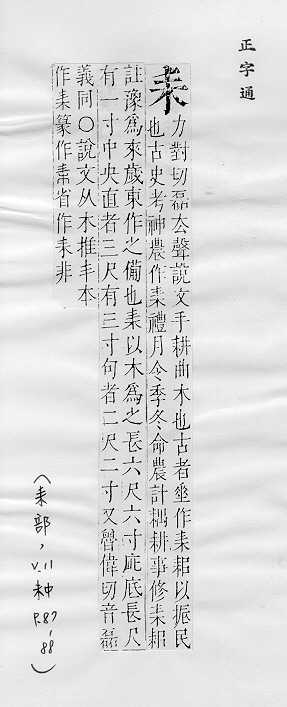 正字通
耒
力對切磊厺聲說文手耕曲木也古者埀作耒耜以振民
也古史考神農作耒禮月令季冬命農計耦耕事修耒耜
註豫爲來歲東作之備也耒以木爲之長六尺六寸庛底長尺
有一寸中央直者三尺有三寸句者二尺二寸又魯偉切音磊
義同○說文从木推丰本
作耒篆作耒省作耒非
(耒部,
v.11
未中
P.87-
88)